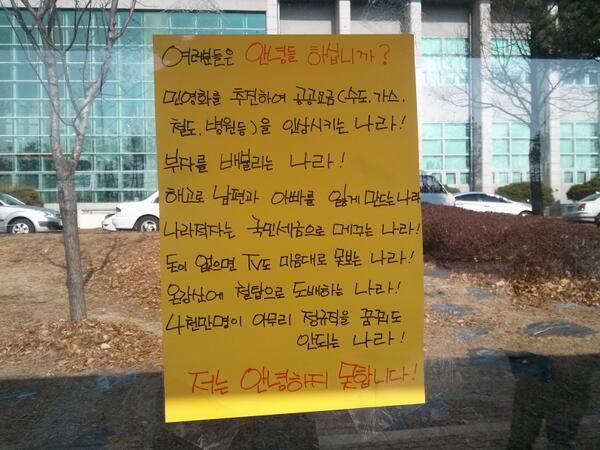 여러분들은 안녕들 하십니까?
민영화를 추진하여 공공요금(수도.가스.
철도.병원등)을 인상시키는 나라!
부자를 배불리는 나라!
해고로 남편과 아빠를 잃게 만드는 나라
나라적자는 국민세금으로 메꾸는 나라!
돈이 없으면 TV도 마음대로 못보는 나라!
온강산에 철탑으로 도배하는 나라!
4천만명이 아무리 정규직을 꿈꿔도
안되는 나라!
저는 안녕하지 못합니다!